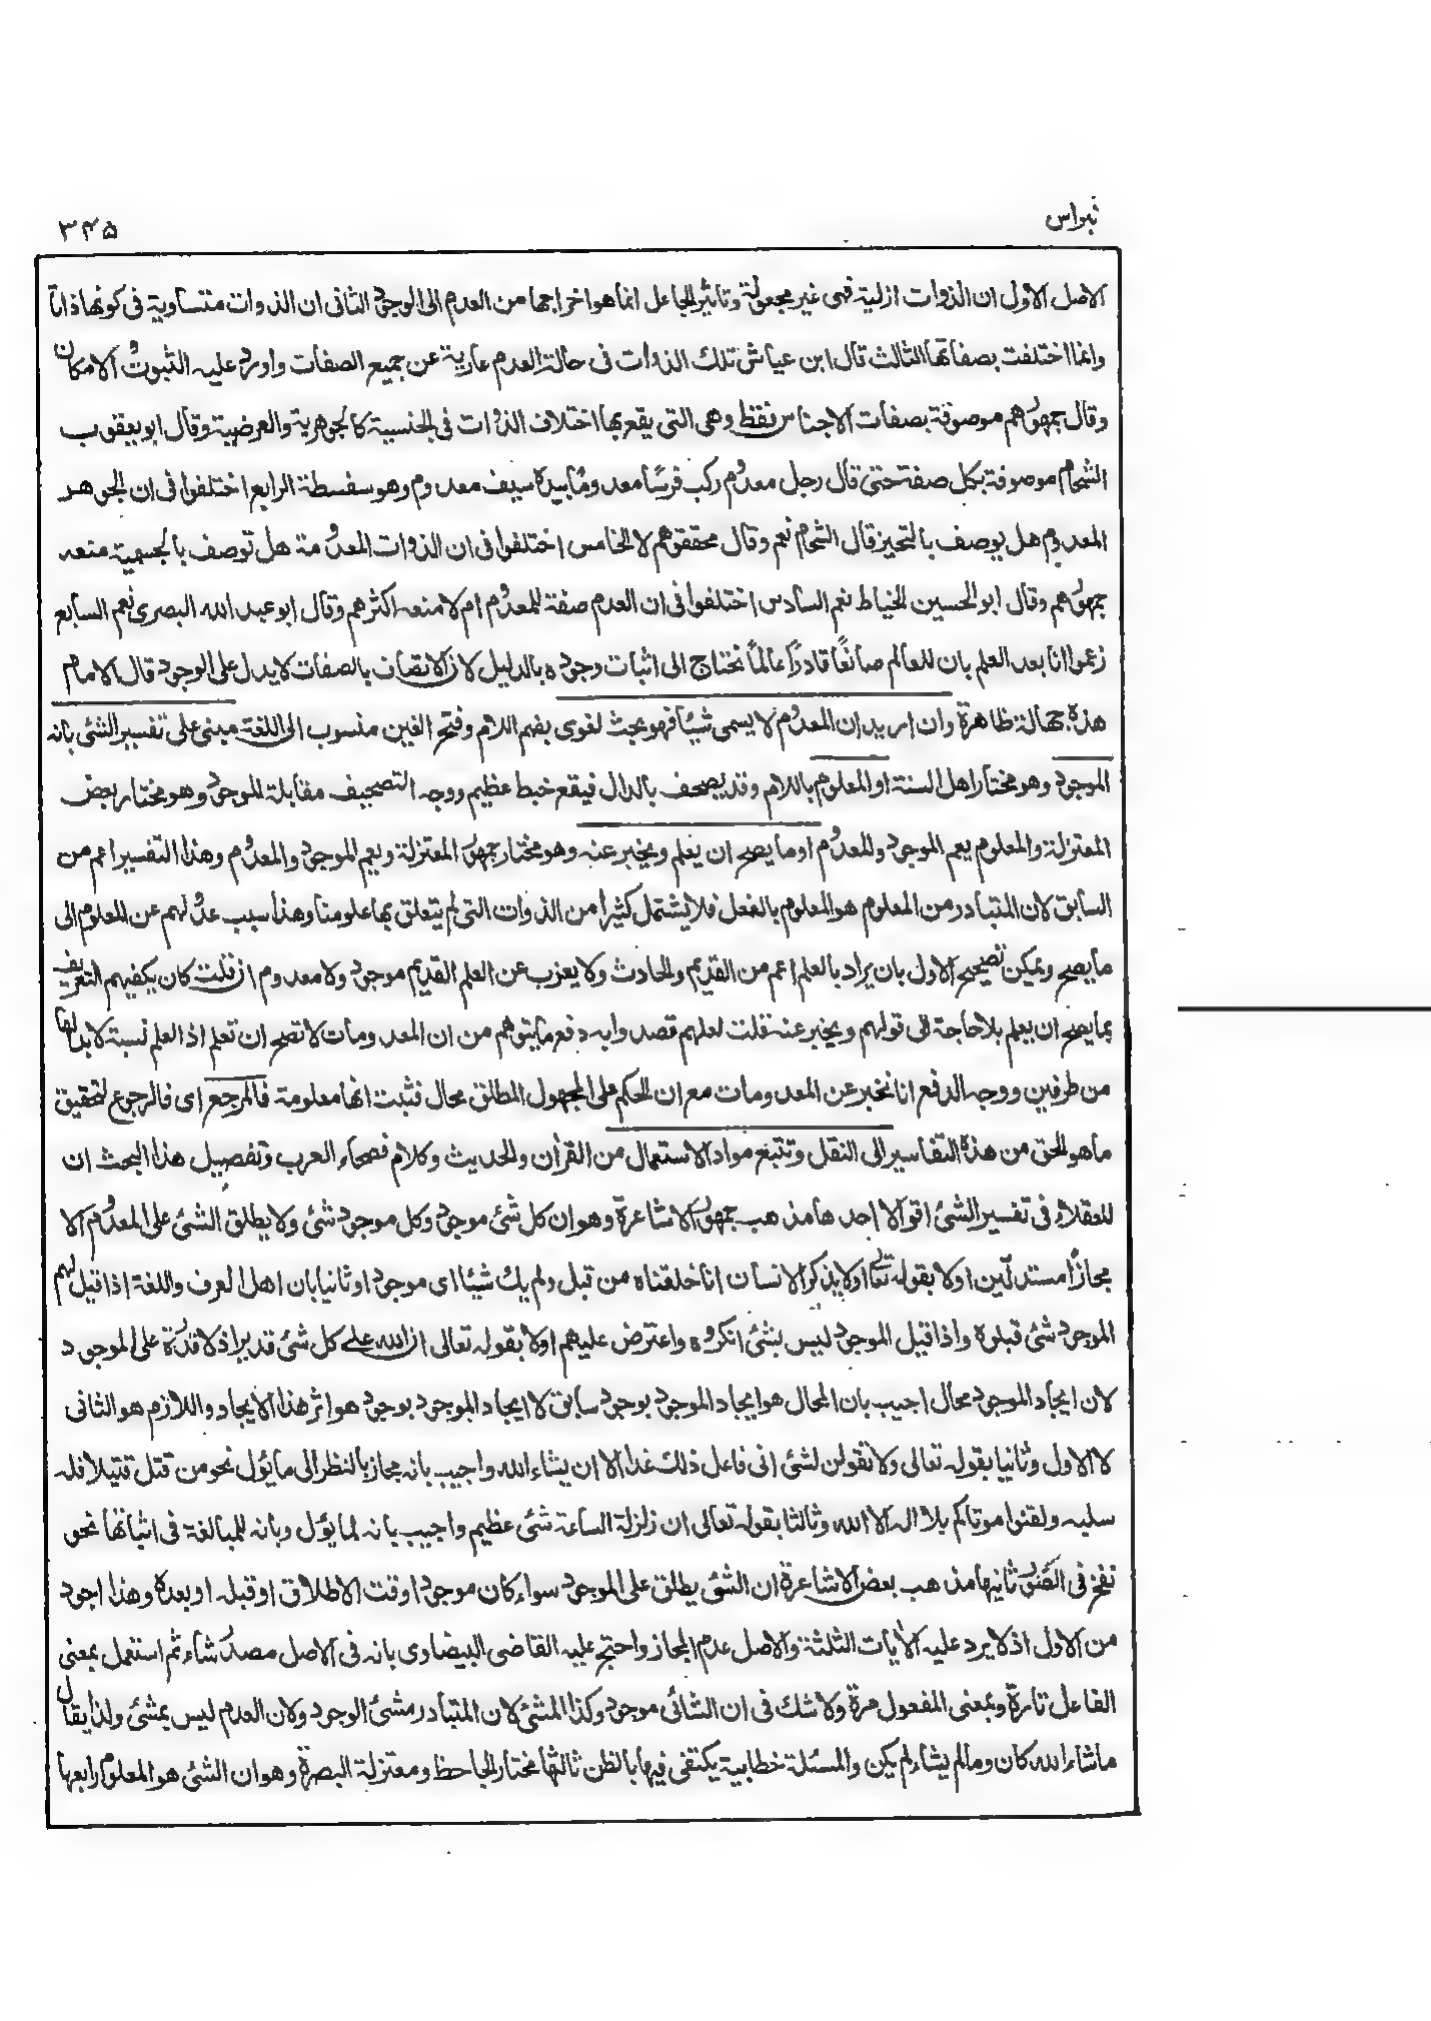 نبراس
۳۴۵
الاصل الاول ان الذوات ازلية فهى غير مجعولة وتاثير الجاعل انما هو اخراجها من العدم الى الوجود الثانى ان الذوات متساوية فى كونها ذاتا
وانما اختلفت بصفاتها الثالث قال ابن عياش تلك الذوات فى حالة العدم عارية عن جميع الصفات واورد عليه الثبوت والامكان
وقال جمهورهم موصوفة بصفات الاجناس فقط وهى التى يقع بها اختلاف الذوات فى الجنسية كالجوهرية والعرضية وقال ابو يعقوب
الشحام موصوفة بكل صفة حتى قال رجل معدوم ركب فرسًا معدومًا بيده سيف معدوم وهو سفسطة الرابع اختلفوا فى ان الجوهر
المعدوم هل يوصف بالتحيز قال الشحام نعم وقال محققوهم لا الخامس اختلفوا فى ان الذوات المعدومة هل توصف بالجسمية منعه
جمهورهم وقال ابو الحسين الخياط نعم السادس اختلفوا فى ان العدم صفة للمعدوم ام لا منعه اكثرهم وقال ابو عبد الله البصرى نعم السابع
زعموا انا بعد العلم بان للعالم صانعًا قادرًا عالمًا نحتاج الى اثبات وجوده بالدليل لان الاتصاف بالصفات لا يدل على الوجود قال الامام
هذه جهالة ظاهرة وان اريد ان المعدوم لا يسمى شيئا فهو بحث لغوى بضم اللام وفتح الغين منسوب الى اللغة مبنى على تفسير الشئ بانه
الموجود وهو مختار اهل السنة او المعلوم باللام وقد يصحف بالدال فيقع خبط عظيم ووجه التصحيف مقابلة للموجود وهو مختار بعض
المعتزلة والمعلوم يعم الموجود والمعدوم او ما يصح ان يعلم ويخبر عنه وهو مختار جمهور المعتزلة ويعم الموجود والمعدوم وهذا التفسير اعم من
السابق لان المتبادر من المعلوم هو المعلوم بالفعل فلا يشتمل كثيرا من الذوات التى لم يتعلق بها علومنا وهذا سبب عدولهم عن المعلوم الى
ما يصح ويمكن تصحيح الاول بان يراد بالعلم اعم من القديم والحادث ولا يعزب عن العلم القديم موجود ولا معدوم ان قلت كان يكفيهم التعريف
بما يصح ان يعلم بلا حاجة الى قولهم ويخبر عنه قلت لعلهم قصدوا به دفع ما يتوهم من ان المعدومات لا تصح ان تعلم اذ العلم نسبة لا بد لها
من طرفين ووجه الدفع انا نخبر عن المعدومات مع ان الحكم على المجهول المطلق محال فثبت انها معلومة فالمرجع اى فالرجوع لتحقيق
ما هو الحق من هذه التفاسير الى النقل وتتبع موارد الاستعمال من القرأن والحديث وكلام فصحاء العرب وتفصيل هذا البحث ان
للعقلاء فى تفسير الشئ اقوالا احدها مذهب جمهور الاشاعرة وهو ان كل شئ موجود وكل موجود شئ ولا يطلق الشئ على المعدوم الا
مجازًا مستدلّين اولا بقوله تعالى اولا يذكر الانسان انا خلقناه من قبل ولم يك شيئا اى موجودا وثانيا بان اهل العرف واللغة اذا قيل لهم
الموجود شئ قبلوه واذا قيل الموجود ليس بشئ انكروه واعترض عليهم اولا بقوله تعالى ان الله على كل شئ قدير اذ لا قدرة على الموجود
لان ايجاد الموجود محال اجيب بان المحال هو ايجاد الموجود بوجود سابق لا ايجاد الموجود بوجود هو اثر هذا الايجاد واللازم هو الثانى
لا الاول وثانيا بقوله تعالى ولا تقولن لشئ انى فاعل ذلك غدا الا ان يشاء الله واجيب بانه مجاز بالنظر الى ما يؤل نحو من قتل قتيلا فله
سلبه ولقنوا موتاكم بلا اله الا الله وثالثا بقوله تعالى ان زلزلة الساعة شئ عظيم واجيب بانه لما يؤل وبانه للمبالغة فى اثباتها نحو
نفخ فى الصور ثانيها مذهب بعض الاشاعرة ان الشئ يطلق على الموجود سواء كان موجودا وقت الاطلاق او قبله او بعده وهذا اجود
من الاول اذ لا يرد عليه الأيات الثلثة والاصل عدم المجاز واحتج عليه القاضى البيضاوى بانه فى الاصل مصدر شاء ثم استعمل بمعنى
الفاعل تارة وبمعنى المفعول مرة ولا شك فى ان الشائى موجود وكذا المشئ لان المتبادر مشئ الوجود ولان العدم ليس بمشئ ولذا يقال
ما شاء الله كان وما لم يشاء لم يكن والمسئلة خطابية يكتفى فيها بالظن ثالثها مختار الجاحظ ومعتزلة البصرة وهو ان الشئ هو المعلوم رابعها